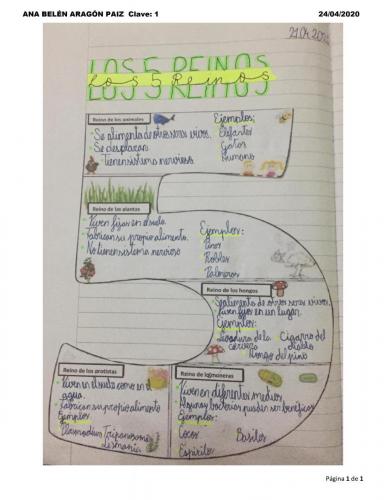 ANA BELÉN ARAGÓN PAIZ Clave: 1 24/04/2020
LOS 5 REINOS
Los 5 Reinos
Reino de los animales
Ejemplos:
Se alimenta de otros seres vivos.
Elefantes
Se desplazan
Gatos
Tienen sistema nervioso
Humano
Reino de las plantas
Viven fijas en el suelo.
Ejemplos:
Fabrican su propio alimento.
Pino
No tienen sistema nervioso
Robles
Palmeras
Reino de los hongos
Se alimenta de otros seres vivos.
Viven fijos en un lugar.
Ejemplos:
Levadura de la cerveza
Cigarro del diablo
Hongo del pino
Reino de los protistas
Viven en el suelo como en el
agua.
Fabrican su propio alimento
Ejemplos
Plasmodium Tripanosoma
Lesmania
Reino de los moneras
Viven en diferentes medios
Algunas bacterias pueden ser beneficas
Ejemplos:
Cocos
Basilos
Espirilos
Página 1 de 1